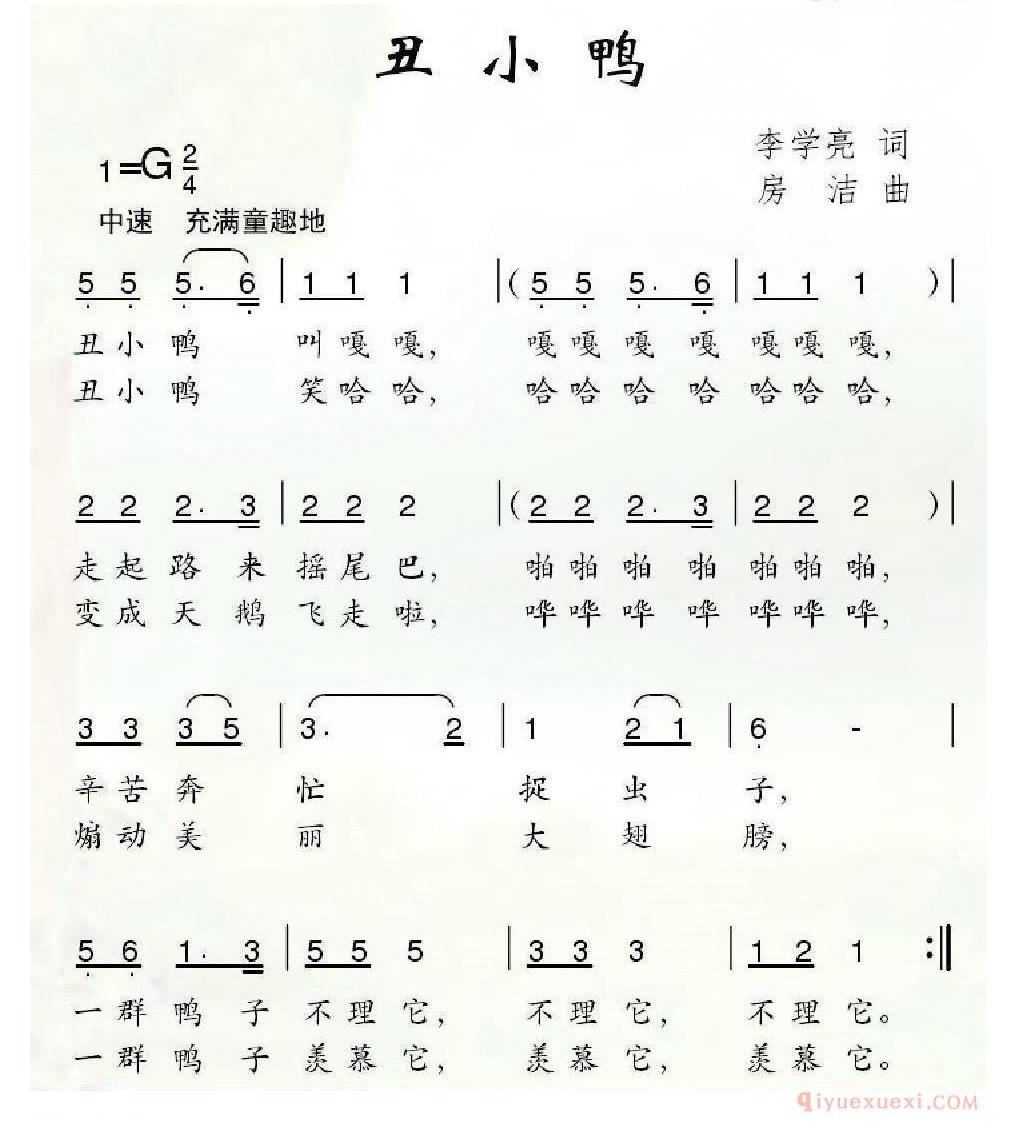 丑小鸭
李学亮 词
1=G 2/4
房 洁 曲
中速 充满童趣地
5 5 5. 6 | 1 1 1 |( 5 5 5. 6 | 1 1 1 )|
丑小鸭 叫嘎嘎, 嘎嘎嘎 嘎 嘎嘎嘎,
丑小鸭 笑哈哈, 哈哈哈 哈 哈哈哈,
2 2 2. 3 | 2 2 2 |( 2 2 2. 3 | 2 2 2 )|
走起路 来 摇尾巴, 啪啪啪 啪 啪啪啪,
变成天 鹅 飞走啦, 哗哗哗 哗 哗哗哗,
3 3 3 5 | 3. 2 | 1 2 1 | 6 - |
辛苦奔 忙 捉 虫 子,
煽动美 丽 大 翅 膀,
5 6 1. 3 | 5 5 5 | 3 3 3 | 1 2 1 :||
一群鸭 子 不理它, 不理它, 不理它。
一群鸭 子 羡慕它, 羡慕它, 羡慕它。
qiyuexuexi.COM